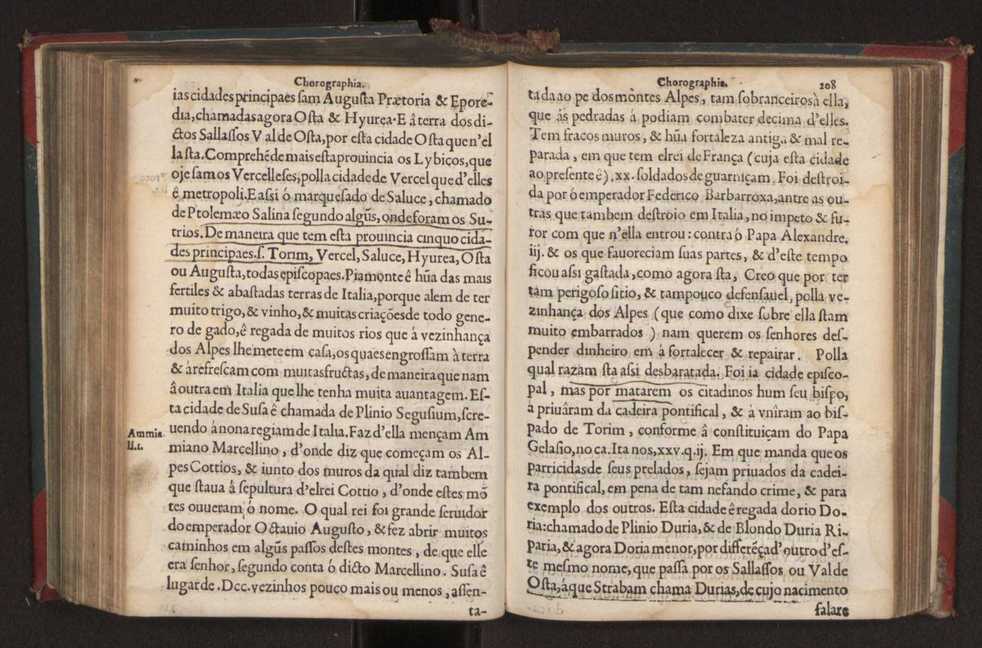 Chorographia.
ias cidades principaes sam Augusta Prætoria & Epore-
dia, chamadas agora Osta & Hyurea. E á terra dos di-
ctos Sallassos Val de Osta, por esta cidade Osta que n'el
la sta. Comprehēde mais esta prouincia os Lybiços, que
oje sam os Vercelleses, polla cidade de Vercel que d'elles
ê metropoli. E assi ó marquesado de Saluce, chamado
de Ptolemæo Salina segundo algũs, onde foram os Su-
trios. De maneira que tem esta prouincia cinquo cida-
des principaes. s. Torim, Vercel, Saluce, Hyurea, Osta
ou Augusta, todas episcopaes. Piamonte ê hũa das mais
fertiles & abastadas terras de Italia, porque alem de ter
muito trigo, & vinho, & muitas criações de todo gene-
ro de gado, ê regada de muitos rios que á vezinhança
dos Alpes lhe mete em casa, os quaes engrossam à terra
& á refrescam com muitas fructas, de maneira que nam
â outra em Italia que lhe tenha muita auantagem. Es-
ta cidade de Susa ê chamada de Plinio Segusium, scre-
uendo á nona regiam de Italia. Faz d'ella mençam Am
Ammia. li.1.
miano Marcellino, d'onde diz que começam os Al-
pes Cottios, & iunto dos muros da qual diz tambem
que staua á sepultura d'elrei Cottio, d'onde estes mō
tes ouueram ó nome. O qual rei foi grande seruidor
do emperador Octauio Augusto, & fez abrir muitos
caminhos em algũs passos destes montes, de que elle
era senhor, segundo conta ó dicto Marcellino. Susa ê
lugar de .Dcc. vezinhos pouco mais ou menos, assen-
ta-
Chorographia. 208
tada ao pe dos mòntes Alpes, tam sobranceiros à ella,
que ás pedradas á podiam combater decima d'elles.
Tem fracos muros, & hũa fortaleza antiga & mal re-
parada, em que tem elrei de França (cuja esta cidade
ao presente ê) .xx. soldados de guarniçam. Foi destroi-
da por ó emperador Federico Barbarroxa, antre as ou-
tras que tambem destroio em Italia, no impeto & fu-
ror com que n'ella entrou: contra ó Papa Alexandre.
iij. & os que fauoreciam suas partes, & d'este tempo
ficou assi gastada, como agora sta, Creo que por ter
tam perigoso sitio, & tampouco defensauel, polla ve-
zinhança dos Alpes (que como dixe sobre ella stam
muito embarrados) nam querem os senhores des-
pender dinheiro em á fortalecer & repairar. Polla
qual razam sta assi desbaratada. Foi ia cidade episco-
pal, mas por matarem os citadinos hum seu bispo,
a priuâram da cadeira pontifical, & á vnîram ao bis-
pado de Torim, conforme â constituiçam do Papa
Gelasio, no ca. Ita nos, xxv. q. ij. Em que manda que os
parricidas de seus prelados, sejam priuados da cadei-
ra pontifical, em pena de tam nefando crime, & para
exemplo dos outros. Esta cidade ê regada do rio Do-
ria: chamado de Plinio Duria, & de Blondo Duria Ri-
paria, & agora Doria menor, por differēça d'outro d'es-
te mesmo nome, que passa por os Sallassos ou Val de
Osta, á que Strabam chama Durias, de cujo nacimento
falare